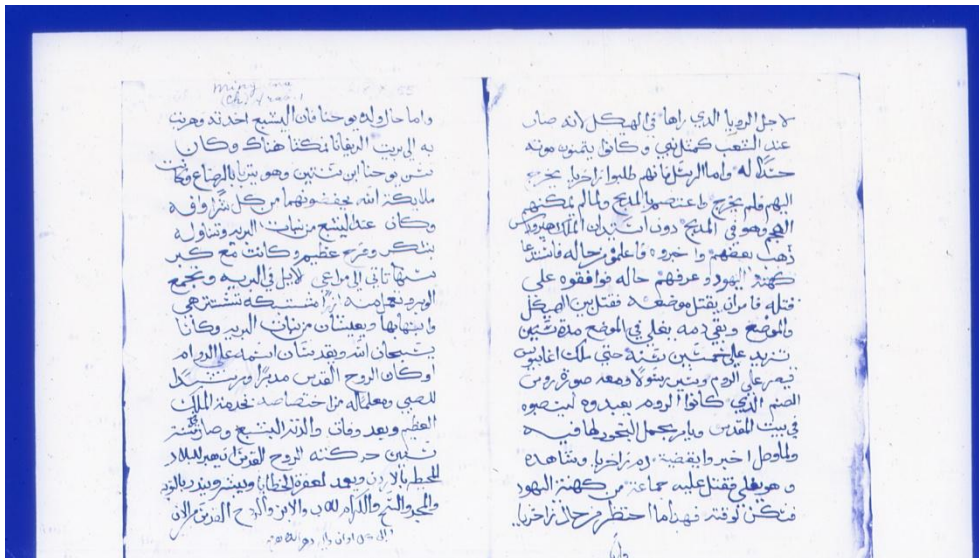 لاجل الرويا الذي راها في الهيكل لانه صار
عند الشعب كمثل نبي وكانوا يتمنون موته
حسدا له واما الرسل فانهم طلبوا زاخريا يخرج
اليهم فلم يخرج واعتصم المدبح ولما لم يمكنهم
الهجم وهو في المدبح دون الملك هيرودس
ذهب بعضهم واخبروه حاله فاستدعا
كهنة اليهود وعرفهم حاله فوافقوه على
قتله فامر ان يقتل موضعه فقتل بين الهيكل
والموضع وبقي دمه يغلي في الموضع مدة سنين
تزيد على خمسين سنة حتى ملك
قيصر على الروم وسير رسولا ومعه صورة روس
الصنم الذي كانوا الروم يعبدوه لينصبوه
في بيت المقدس ويامر بحمل البخور لها فيه
ولما وصل اخبروا بقضية دم زاخريا وشاهده
وهو يغلي فقتل عليه جماعة من كهنة اليهود
فسكن لوقته فهذا ما احتظر من حال زاخريا
واما حال ولده يوحنا فان اليشبع اخدته وهربت
به الى بريت فمكثا هناك وكان
سن يوحنا ابن سنتين وهو يتربا بالرضاع وكانت
ملايكة الله يحفضونهما من كل شر وافه
وكان عند اليشبع من نبات البريه وتناوله
بشكر وفرح عظيم وكانت مع كبر
سنها تاتي الى مراعي الابل في البريه وتجمع
الوبر وتعمل منه
وابنها بها ويعيشان من نبات البريه وكانا
يسبحان الله ويقدسان اسمه على الدوام
وكان الروح القدس مدبرا ومرشدا
للصبي ومعلما له اختصاصه بخدمة الملك
العظيم وبعد وفات والدته اليشبع وصار
سنين حركته الروح القدس
المحيطه بالاردن ويعمد لمغفرة الخطايا ويبشر وينذر
والمجد والسبح والاكرام للاب والابن والروح القدس من الان